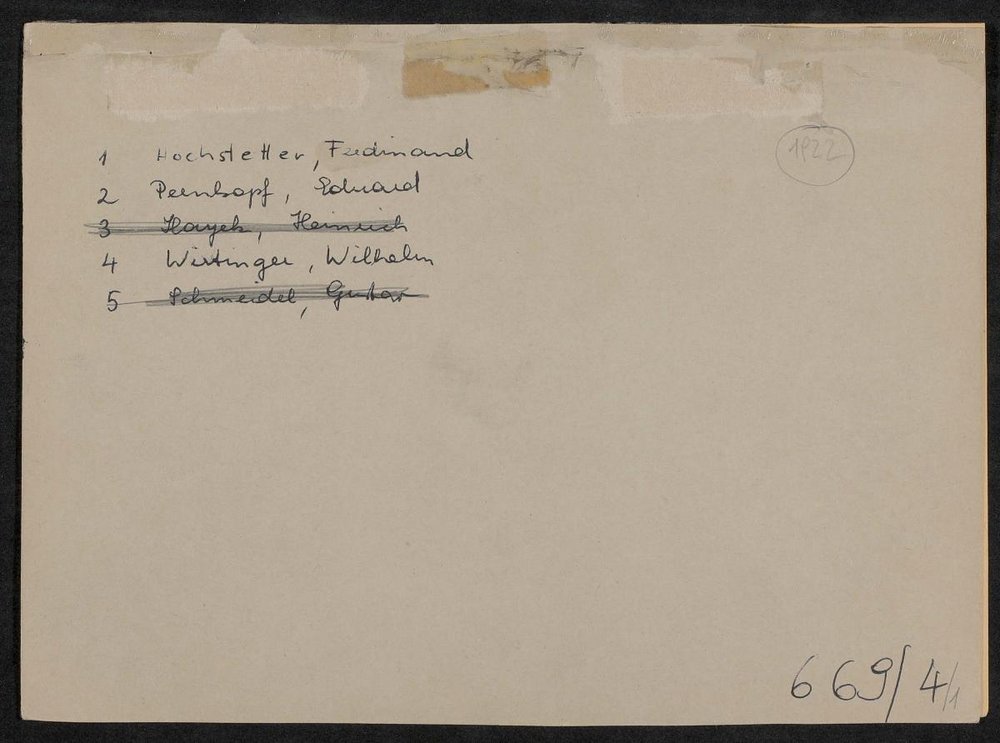 1 Hochstetter, Ferdinand
1922
2 Pernkopf, Eduard
3 Hayek, Heinrich
4 Wirtinger, Wilhelm
5 Schmeidel, Gustav
669/4/1